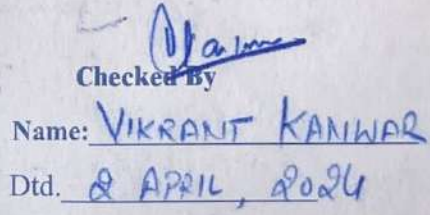 Checked By
Name: VIKRANT KANWAR
Dtd. 2 APRIL, 2024